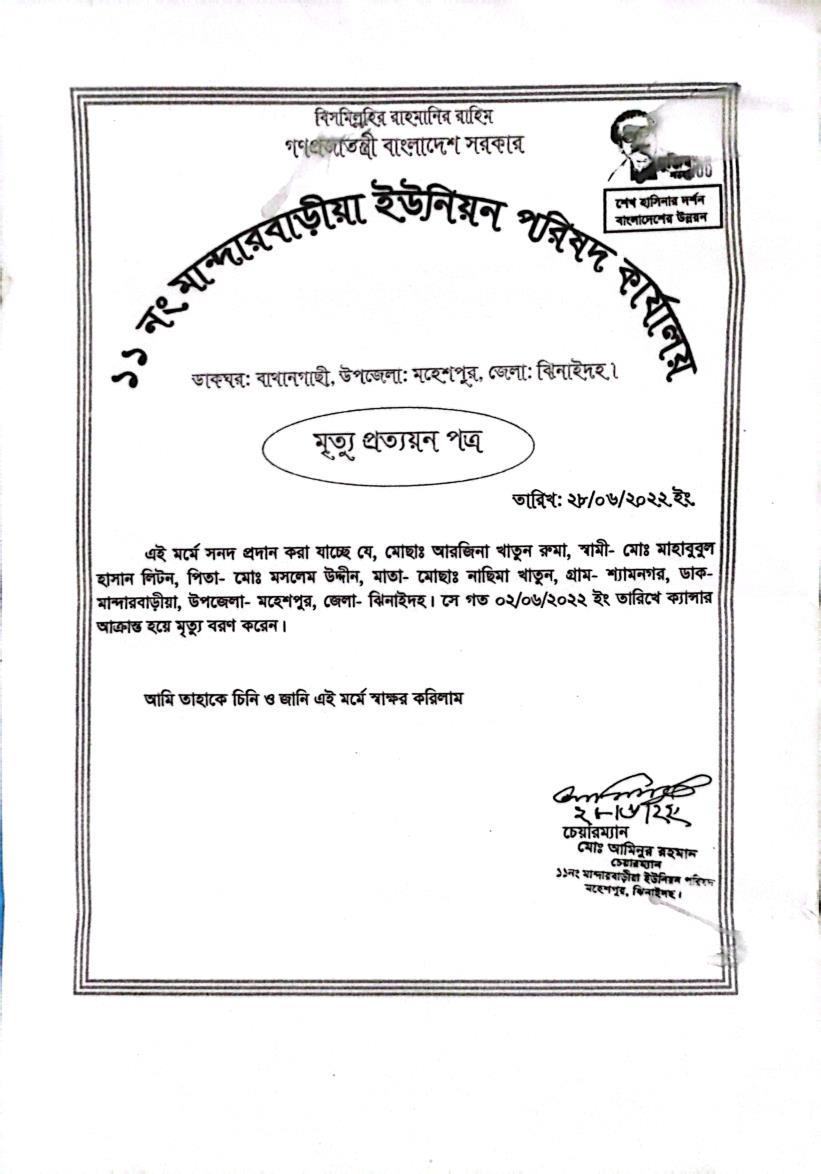 বিসমিল্লাহির রাহমানির রাহিম
গণপ্রজাতন্ত্রী বাংলাদেশ সরকার
শেখ হাসিনার দর্শন
বাংলাদেশের উন্নয়ন
১১ নং মান্দারবাড়ীয়া ইউনিয়ন পরিষদ কার্যালয়
ডাকঘর: বাথানগাছী, উপজেলা: মহেশপুর, জেলা: ঝিনাইদহ।
মৃত্যু প্রত্যয়ন পত্র
তারিখ: ২৮/০৬/২০২২ ইং
এই মর্মে সনদ প্রদান করা যাচ্ছে যে, মোছাঃ আরজিনা খাতুন রুমা, স্বামী- মোঃ মাহাবুবুল
হাসান লিটন, পিতা- মোঃ মসলেম উদ্দীন, মাতা- মোছাঃ নাছিমা খাতুন, গ্রাম- শ্যামনগর, ডাক-
মান্দারবাড়ীয়া, উপজেলা- মহেশপুর, জেলা- ঝিনাইদহ। সে গত ০২/০৬/২০২২ ইং তারিখে ক্যান্সার
আক্রান্ত হয়ে মৃত্যু বরণ করেন।
আমি তাহাকে চিনি ও জানি এই মর্মে স্বাক্ষর করিলাম
২৮/৬/২২
চেয়ারম্যান
মোঃ আমিনুর রহমান
চেয়ারম্যান
১১নং মান্দারবাড়ীয়া ইউনিয়ন পরিষদ
মহেশপুর, ঝিনাইদহ।